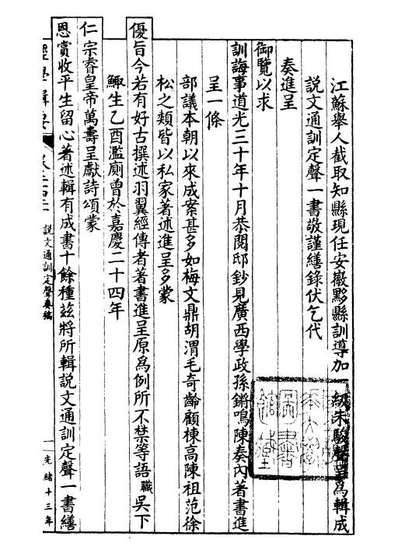 江蘇舉人截取知縣現任安徽黟縣訓導加級朱駿聲呈爲輯成
說文通訓定聲一書敬謹繕錄伏乞代
奏進呈
御覽以求
訓誨事道光三十年十月恭閱邸鈔見廣西學政孫鏘鳴陳奏內著書進
呈一條
部議本朝以來成案甚多如梅文鼎胡渭毛奇齡顧棟高陳祖范徐
松之類皆以私家著述進呈多蒙
優旨今若有好古撰述羽翼經傳者著書進呈原爲例所不禁等語職吳下
鯫生乙酉濫廁曾於嘉慶二十四年
仁宗睿皇帝萬壽呈獻詩頌蒙
恩賞收平生留心著述輯有成書十餘種茲將所輯說文通訓定聲一書繕
說文通訓定聲
一
光緒十三年